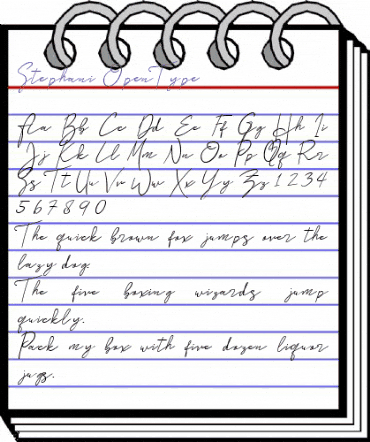 Stephani OpenType
Aa Bb Cc Dd Ee Ff Gg Hh Ii
Jj Kk Ll Mm Nn Oo Pp Qq Rr
Ss Tt Uu Vv Ww Xx Yy Zz 1 2 3 4
5 6 7 8 9 0
The quick brown fox jumps over the
lazy dog.
The five boxing wizards jump
quickly.
Pack my box with five dozen liquor
jugs.